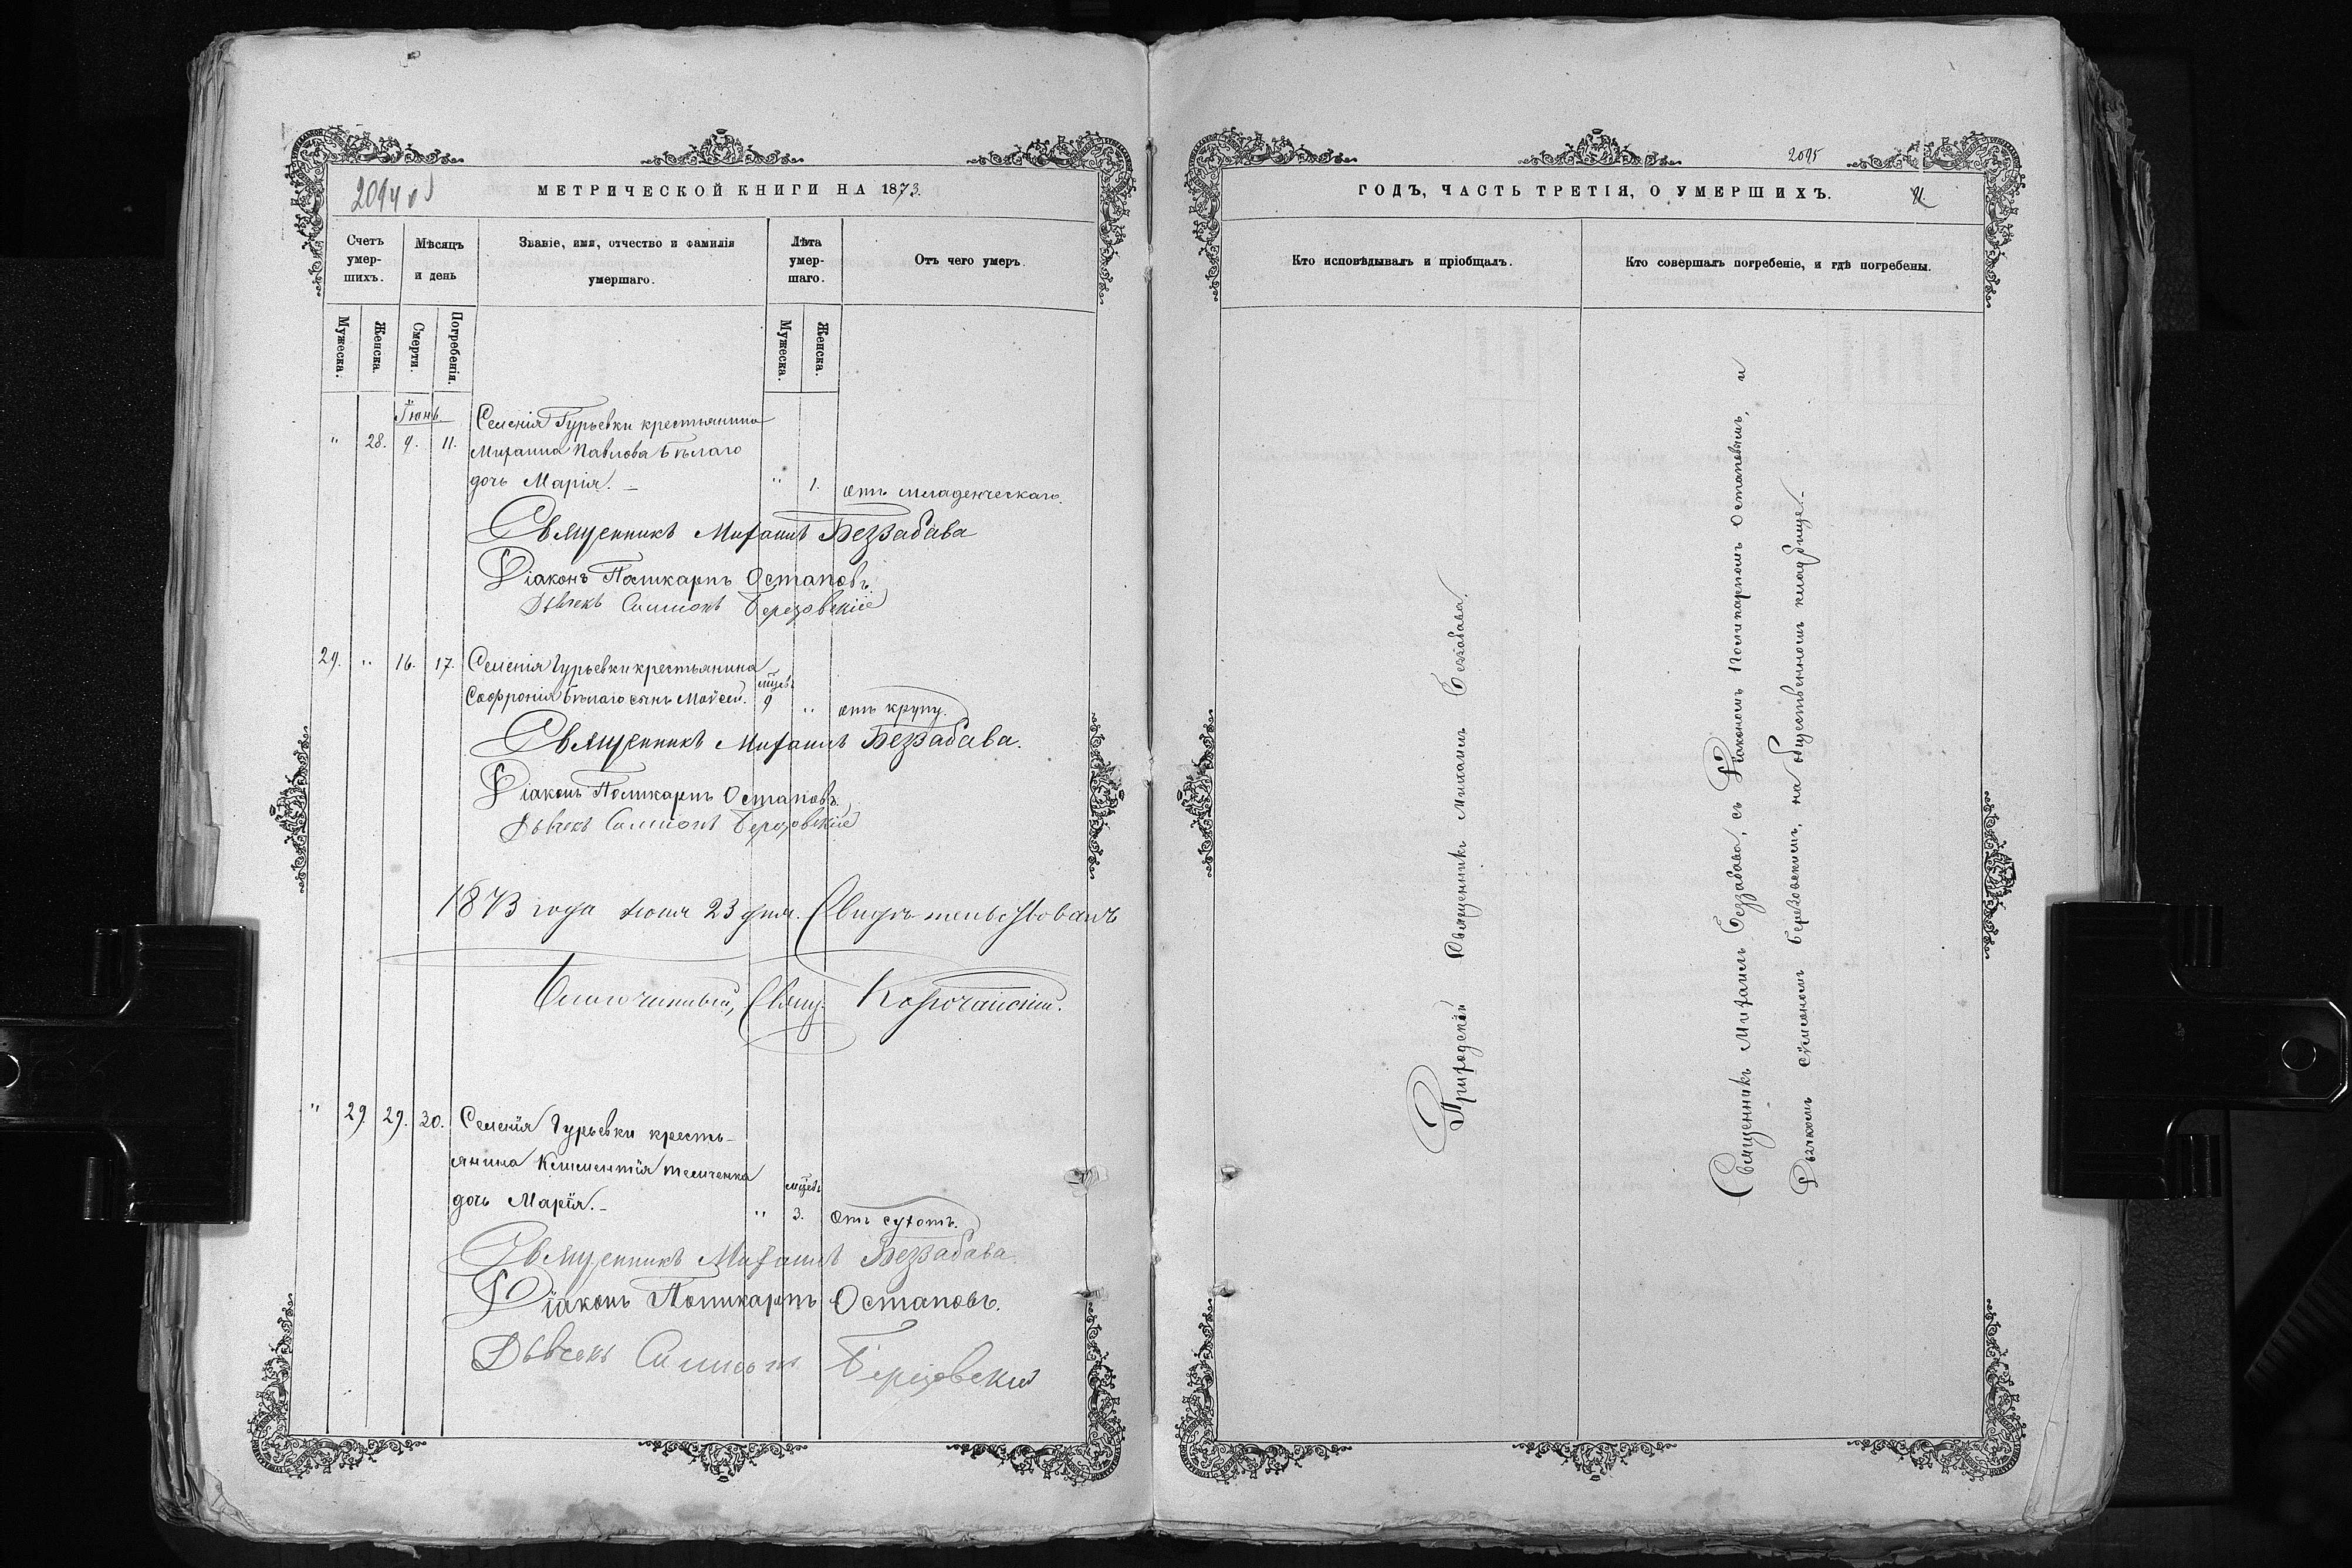 2094 об
МЕТРИЧЕСКОЙ КНИГИ НА 1873.
Счетъ умер- шихъ.
Мѣсяцъ и день
Званіе, имя, отчество и фамилія умершаго.
Лѣта умер- шаго.
Отъ чего умеръ.
Мужеска.
Женска.
Смерти.
Погребенія.
Мужеска.
Женска.
Іюнь
Селенія Гурьевки крестьянина
" 28. 9. 11. Михаила Павлова Бѣлаго
дочь Марія. " 1. отъ младенческаго.
Священникъ Михаилъ Беззабава
Діаконъ Поликарпъ Остаповъ
Дьячекъ Симеонъ Березовскій
29. " 16. 17. Селенія Гурьевки крестьянина
Софронія Бѣлаго сынъ Моѵсей. мцевъ 9 " отъ крупу.
Священникъ Михаилъ Беззабава.
Діаконъ Поликарпъ Остаповъ.
Дьячекъ Симеонъ Березовскій
1873 года Іюня 23 дня. Свидѣтельствовалъ
Благочинный, Свящ.
" 29. 29. 30. Селенія Гурьевки кресть-
янина Климентія Темченка
дочь Марія. " мцевъ 3. отъ сухотъ.
Священникъ Михаилъ Беззабава.
Діаконъ Поликарпъ Остаповъ.
Дьячекъ Симеонъ Березовскій
2095
ГОДЪ, ЧАСТЬ ТРЕТІЯ, О УМЕРШИХЪ.
Кто исповѣдывалъ и пріобщалъ.
Кто совершалъ погребеніе, и гдѣ погребены.
Приходскій Священникъ Михаилъ Беззабава.
Священникъ Михаилъ Беззабава, съ Діакономъ Поликарпомъ Остаповымъ, и
Дьячкомъ Сѵмеономъ Березовскимъ, на общественномъ кладбище.